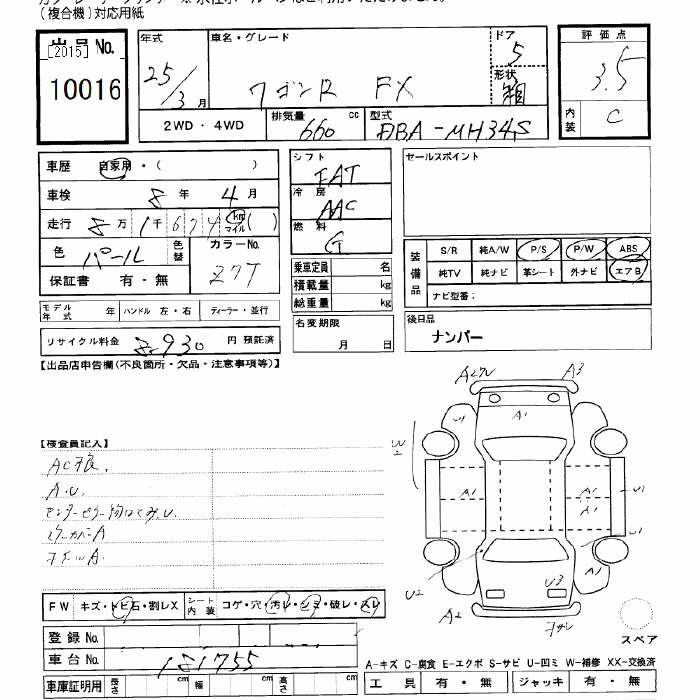 (複合機)対応用紙
出品 No.
[2015]
10016
年式
25/3月
車名・グレード
ワゴンR FX
ドア
5
形状
箱
2WD・4WD
排気量 660 cc
型式 DBA-MH34S
評価点
3.5
内装 C
車歴 自家用・( )
車検 8年 4月
走行 8万1千674 km マイル ( )
色 パール 色替
カラーNo.
Z7T
保証書 有・無
シフト
FAT
冷房
AAC
燃料
G
乗車定員 名
積載量 kg
総重量 kg
セールスポイント
装備品
S/R 純A/W P/S P/W ABS
純TV 純ナビ 革シート 外ナビ エアB
ナビ型番:
モデル年式 年 ハンドル 左・右 ディーラー・並行
リサイクル料金 8930 円 預託済
名変期限
月 日
後日品
ナンバー
【出品店申告欄(不良箇所・欠品・注意事項等)】
【検査員記入】
AC不良.
A.U.
A
A
A3
U1
A1
W2
A1
A1
A1
U1
U1
A1
U2
U3
A2
スペア
FW キズ・トビ石・割レX
シート内装 コゲ・穴・汚レ・シミ・破レ・スレ
登録 No.
車台 No. 181755
車庫証明用 長さ cm 幅 cm 高さ cm
A-キズ C-腐食 E-エクボ S-サビ U-凹ミ W-補修 XX-交換済
工具 有・無 ジャッキ 有・無